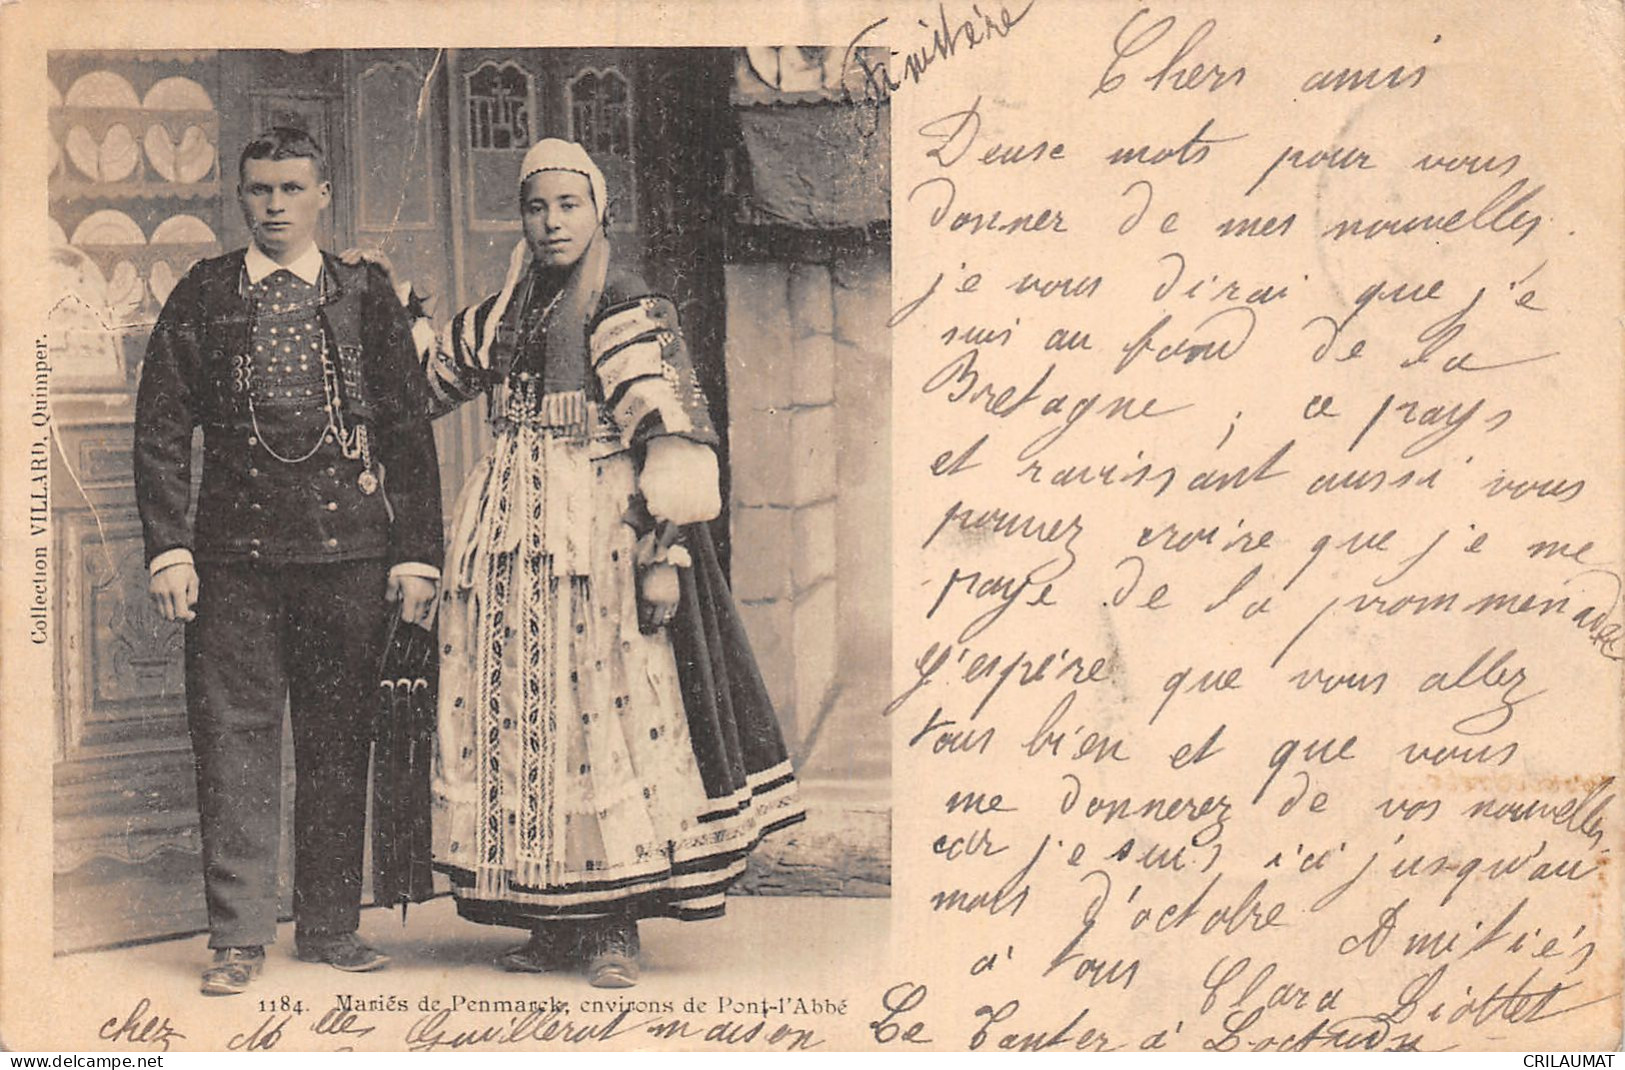 Finistère
Chers amis
Deuse mots pour vous
donner de mes nouvelles.
je vous dirai que je
suis au fond de la
Bretagne, ce pays
et ravissant aussi vous
pouvez croire que je me
paye de la prommenade
J'espère que vous allez
tous bien et que vous
me donnerez de vos nouvelles
car je suis ici jusqu'au
mois d'octobre Amitiés
à tous Clara Liottet
Collection VILLARD, Quimper.
1184. Mariés de Penmarck, environs de Pont-l'Abbé
chez Mlles Guillerot maison Le Tanter à Loctudy
CRILAUMAT